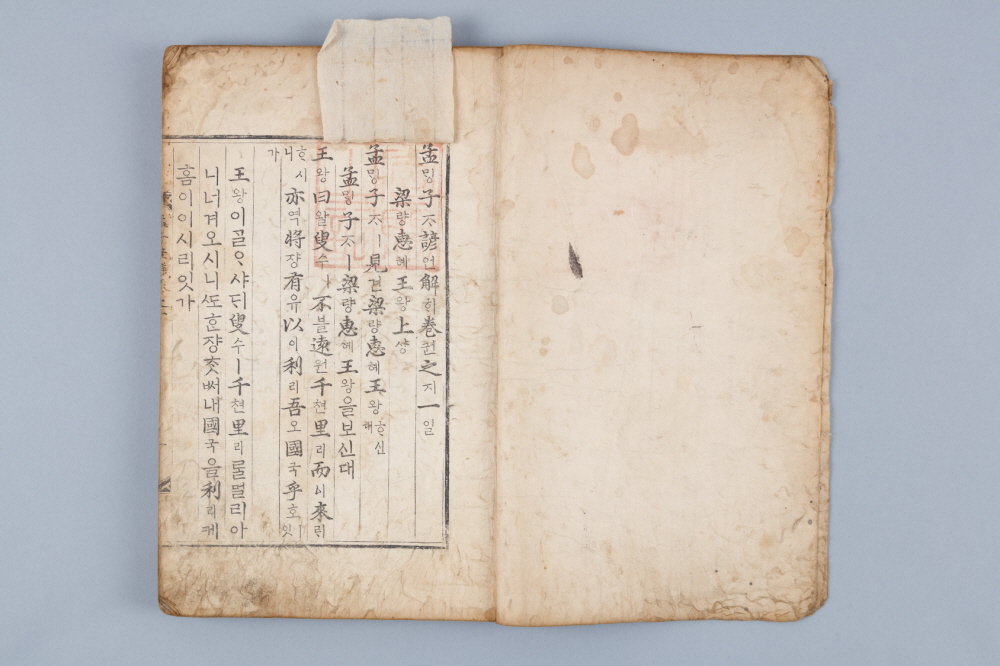 孟밍子ᄌᆞ諺언解ᄒᆡ卷권之지一일
梁량惠혜王왕上샹
孟밍子ᄌᆞㅣ見견梁량惠혜王왕ᄒᆞ신대
孟밍子ᄌᆞㅣ梁량惠혜王왕을보신대
王왕曰왈叟수ㅣ不블遠원千쳔里리而이來ᄅᆡᄒᆞ시니
亦역將쟝有유以이利리吾오國국乎호ㅣ잇가
王왕이ᄀᆞᆯᄋᆞ샤ᄃᆡ叟수ㅣ千쳔里리ᄅᆞᆯ멀리아
니너겨오시니ᄯᅩᄒᆞᆫ쟝ᄎᆞᆺᄡᅥ내國국을利리케
홈이이시리잇가